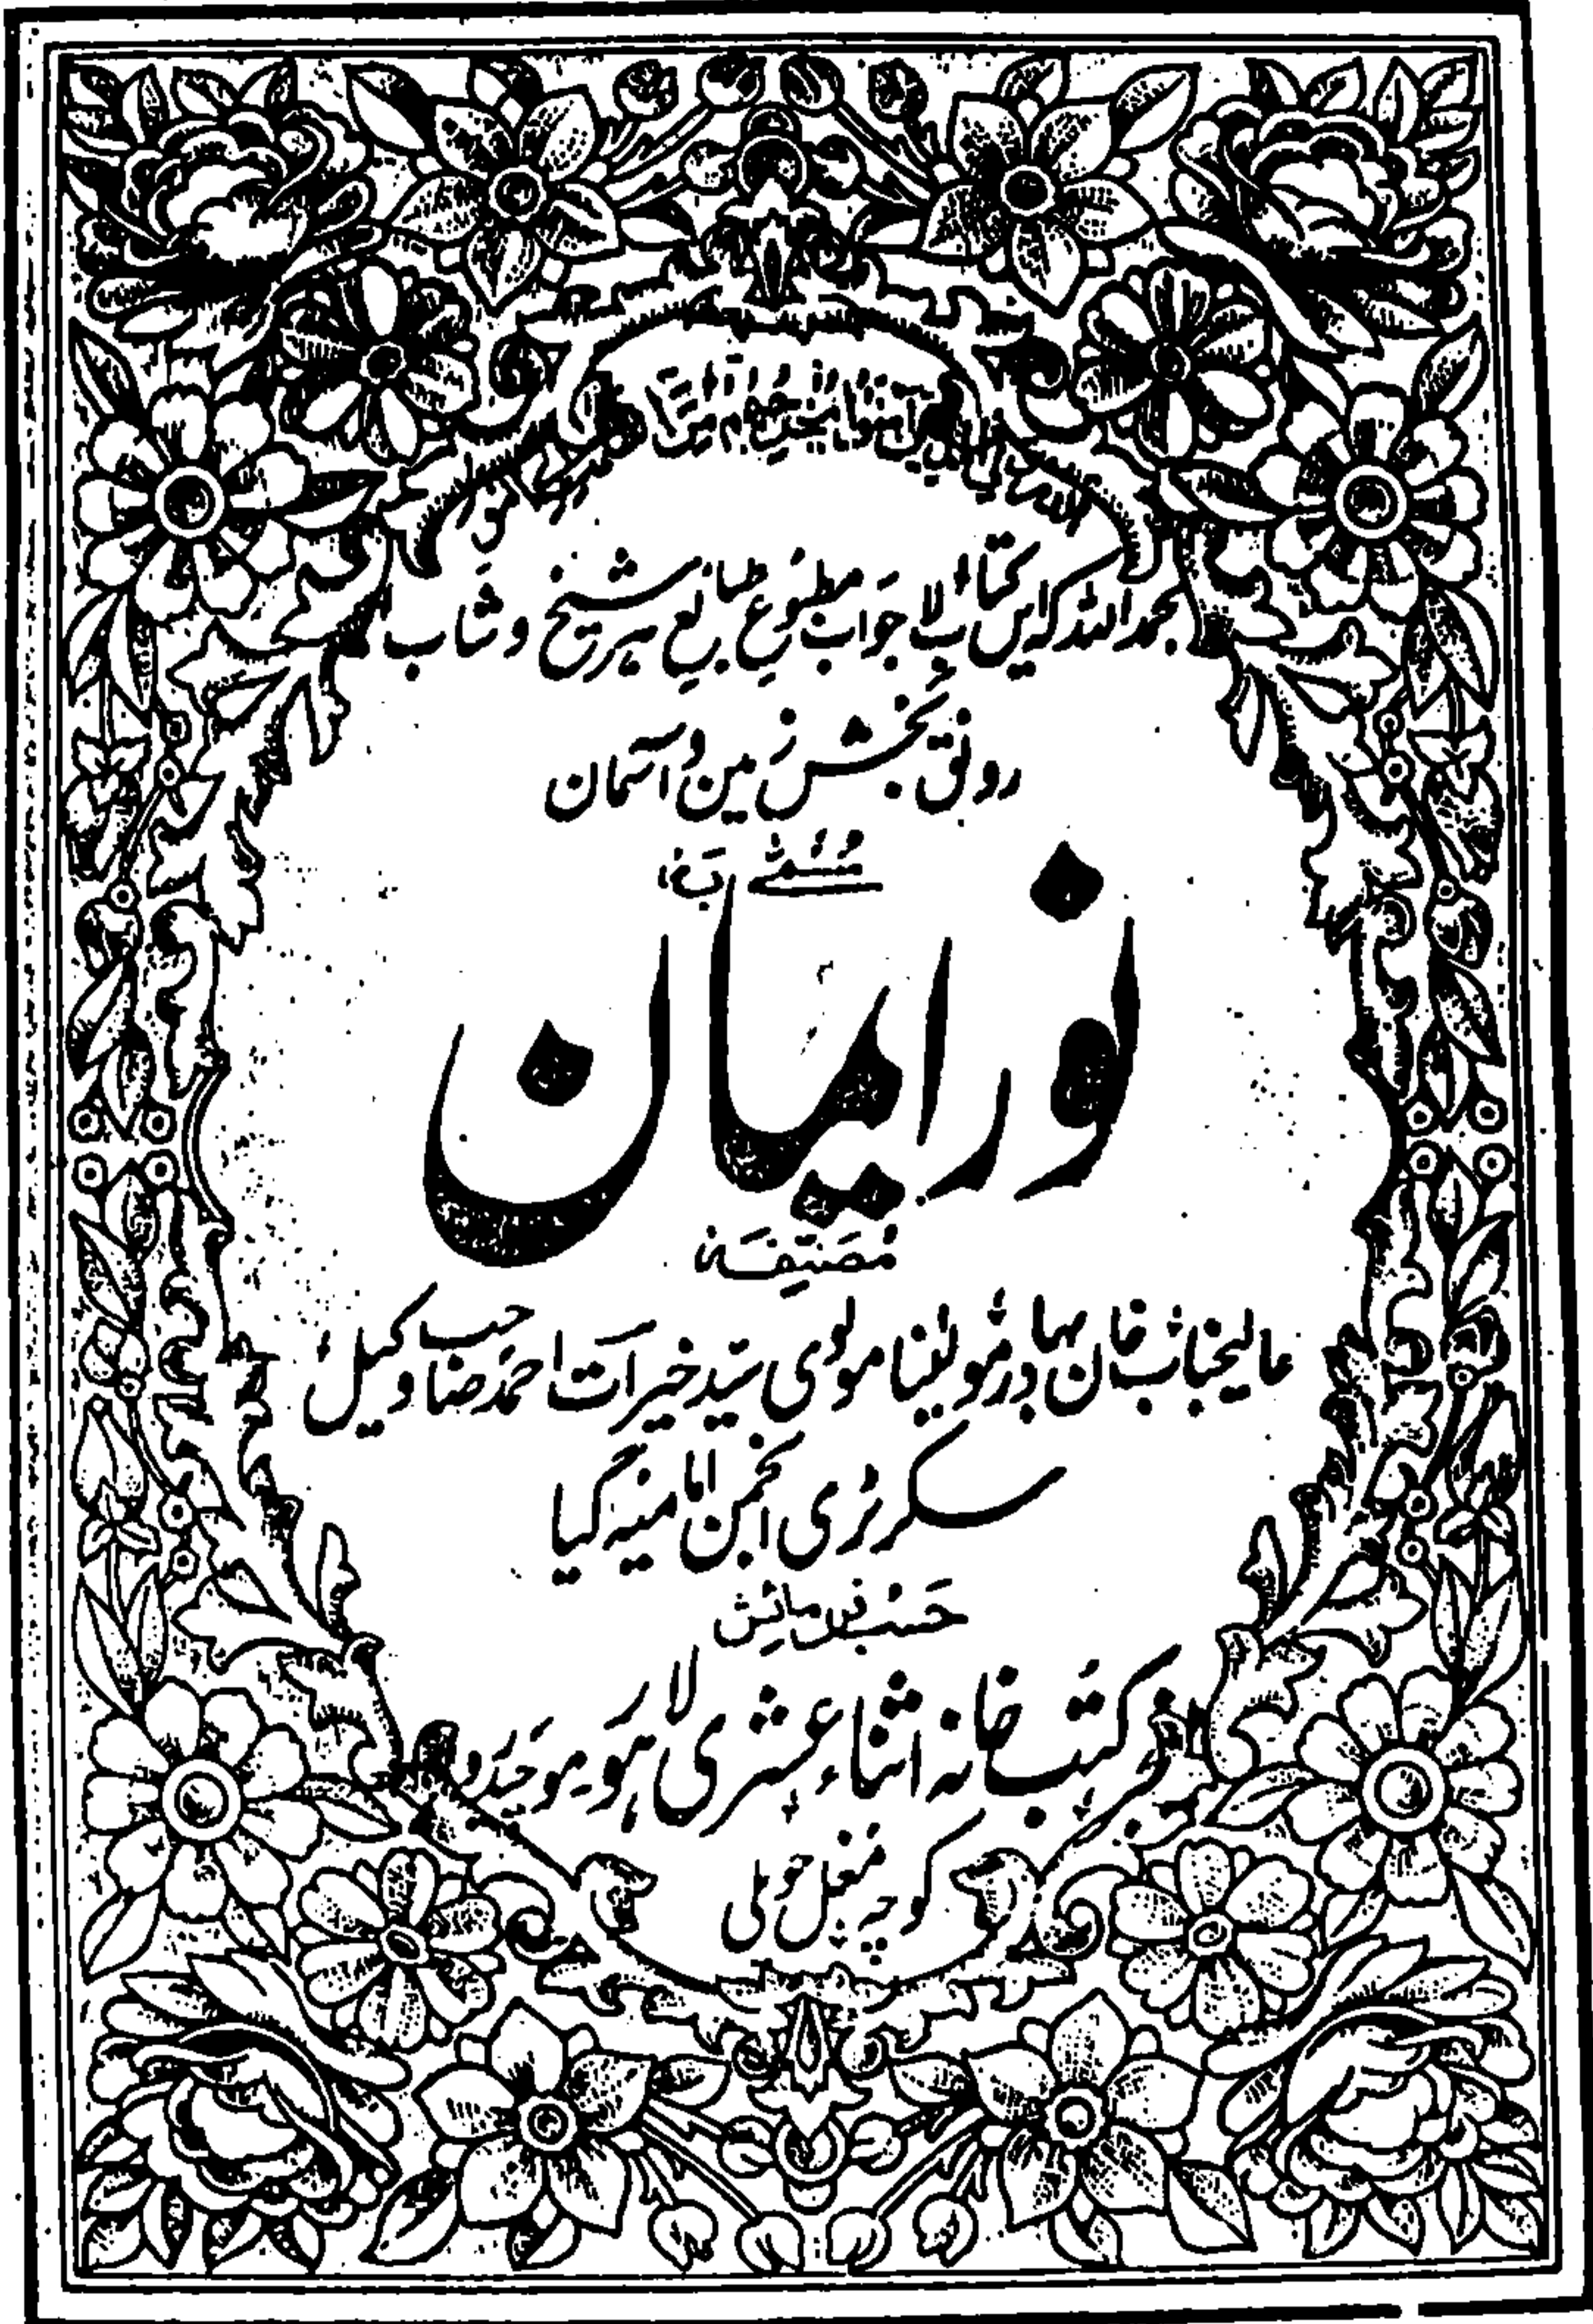 بحمد اللہ کہ ایں کتاب لا جواب مطبوع طبائع ہر شیخ و شاب
رونق بخش زمین و آسمان
مسمےٰ بہ
نور ایمان
مصنفہ
عالیجناب خان بہادر مولینا مولوی سید خیرات احمد صاحب وکیل
سکرٹری انجمن امامیہ گیا
حسب فرمائش
کتب خانہ اثناء عشری لاہور موچیدروازہ
کوچہ مغل حویلی